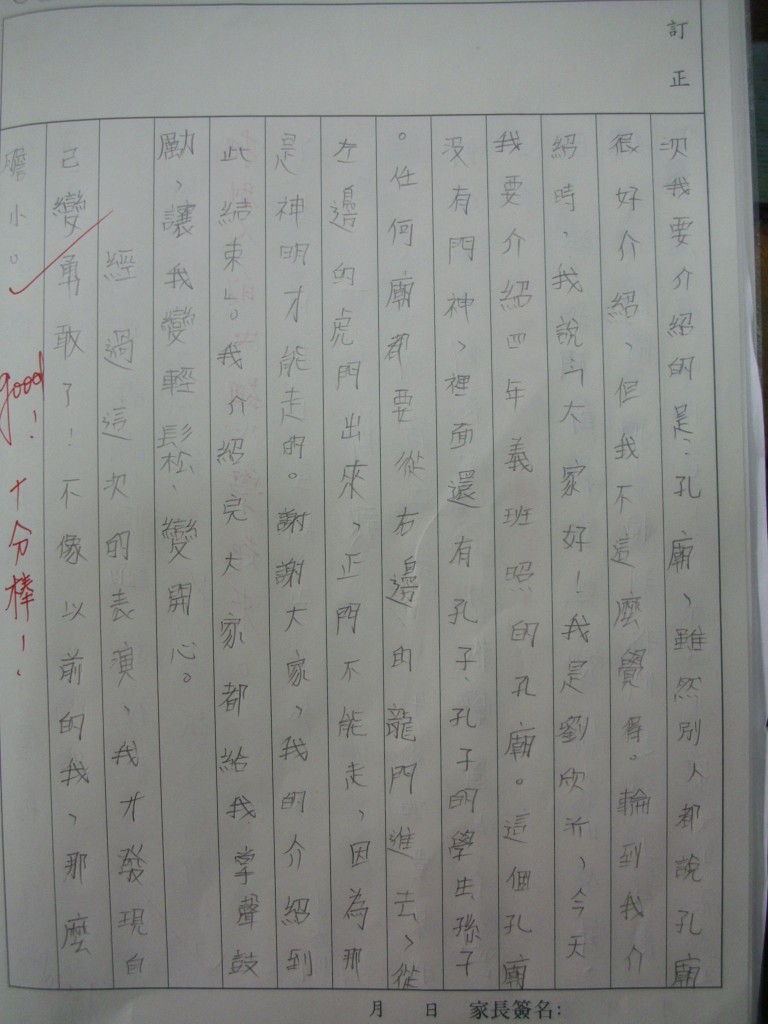 訂正
次我要介紹的是:孔廟、雖然別人都說孔廟
很好介紹、但我不這麼覺得。輪到我介
紹時、我說:「大家好!我是劉欣沂、今天
我要介紹四年義班照的孔廟。這個孔廟
沒有門神、裡面還有孔子、孔子的學生、孫子
。任何廟都要從右邊的龍門進去、從
左邊的虎門出來、正門不能走、因為那
是神明才能走的。謝謝大家、我的介紹到
此結束」。我介紹完大家都給我掌聲鼓
勵、讓我變輕鬆、變開心。
經過這次的表演、我才發現自
己變勇敢了!不像以前的我、那麼
膽小。
good!十分棒!
月 日 家長簽名: